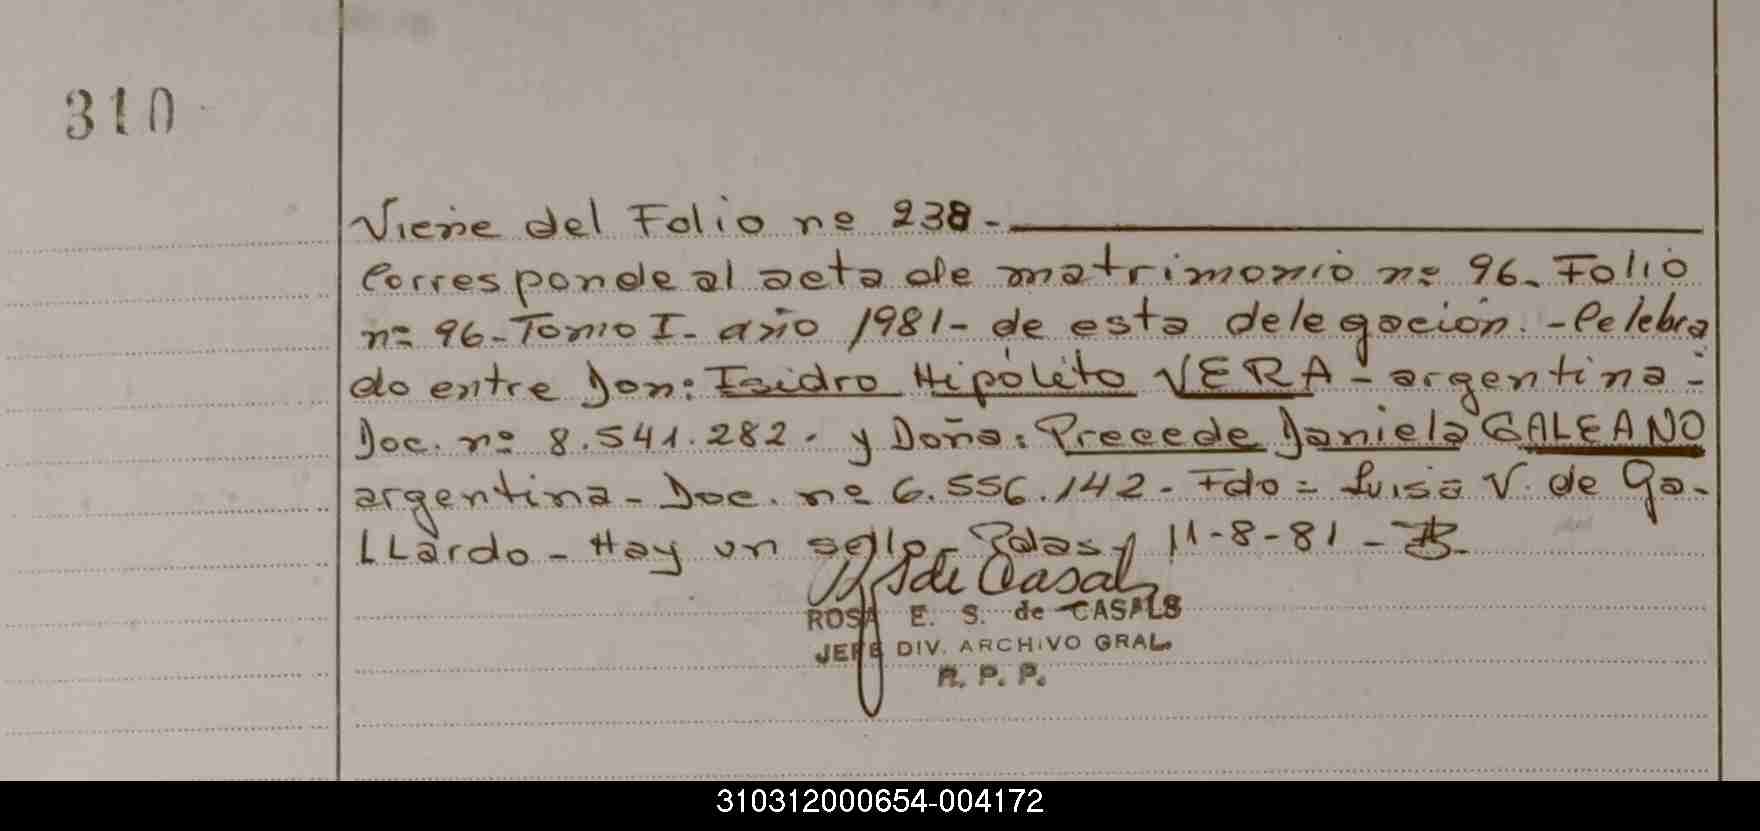 310
Viene del Folio nº 238-
Corresponde al acta de matrimonio nº 96. Folio
nº 96-Tomo I- año 1981- de esta delegación.-Celebra
do entre Don: Isidro Hipólito VERA - argentina-
Doc. nº 8.541.282. y Doña: Precede Daniela GALEANO
argentina- Doc. nº 6.556.142- Fdo= Luisa V. de Ga-
LLardo - Hay un sello- 11-8-81 -
de Casals
ROSA E. S. de CASALS
JEFE DIV. ARCHIVO GRAL.
R. P. P.
310312000654-004172